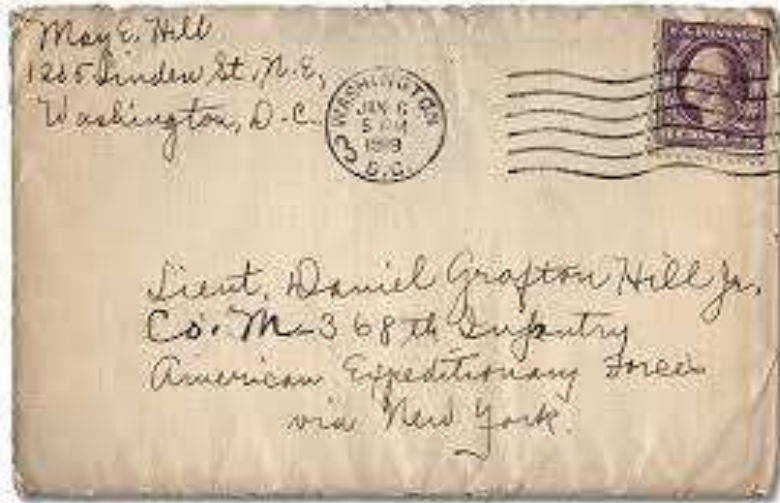 May E. Hill
1205 Linden St. N.E,
Washington, D.C.
WASHINGTON
JAN 6
5 PM
1919
3
D.C.
Lieut. Daniel Grafton Hill Jr.
Co. M- 368th Infantry
American Expeditionary Forces
via New York.